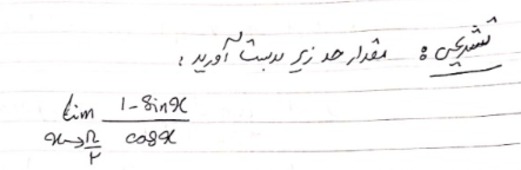 تشریحی : مقدار حد زیر بدست آورید :
lim 1-Sinx
x→π/۲ cosx